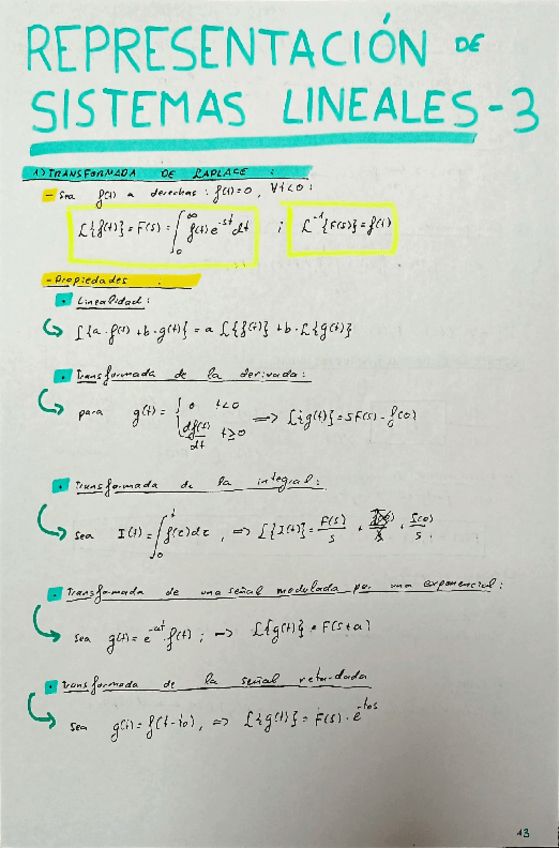 REPRESENTACIÓN DE
SISTEMAS LINEALES-3
1) TRANSFORMADA DE LAPLACE :
- Sea f(t) a derechas : f(t)=0, ∀t<0 :
L{f(t)} = F(s) = ∫₀^∞ f(t) e^-st dt ; L^-1{F(s)} = f(t)
- Propiedades .
• Linealidad :
L{a·f(t) + b·g(t)} = a L{f(t)} + b·L{g(t)}
• Transformada de la derivada :
para g(t) = { 0 t<0 ; df(t)/dt t≥0 => L{g(t)} = sF(s) - f(0)
• Transformada de la integral :
sea I(t) = ∫₀^t f(τ)dτ, => L{I(t)} = F(s)/s + I(0)/s
• Transformada de una señal modulada por una exponencial :
sea g(t) = e^-at · f(t) ; => L{g(t)} = F(s+a)
• Transformada de la señal retardada
sea g(t) = f(t-to), => L{g(t)} = F(s) · e^-tos
13